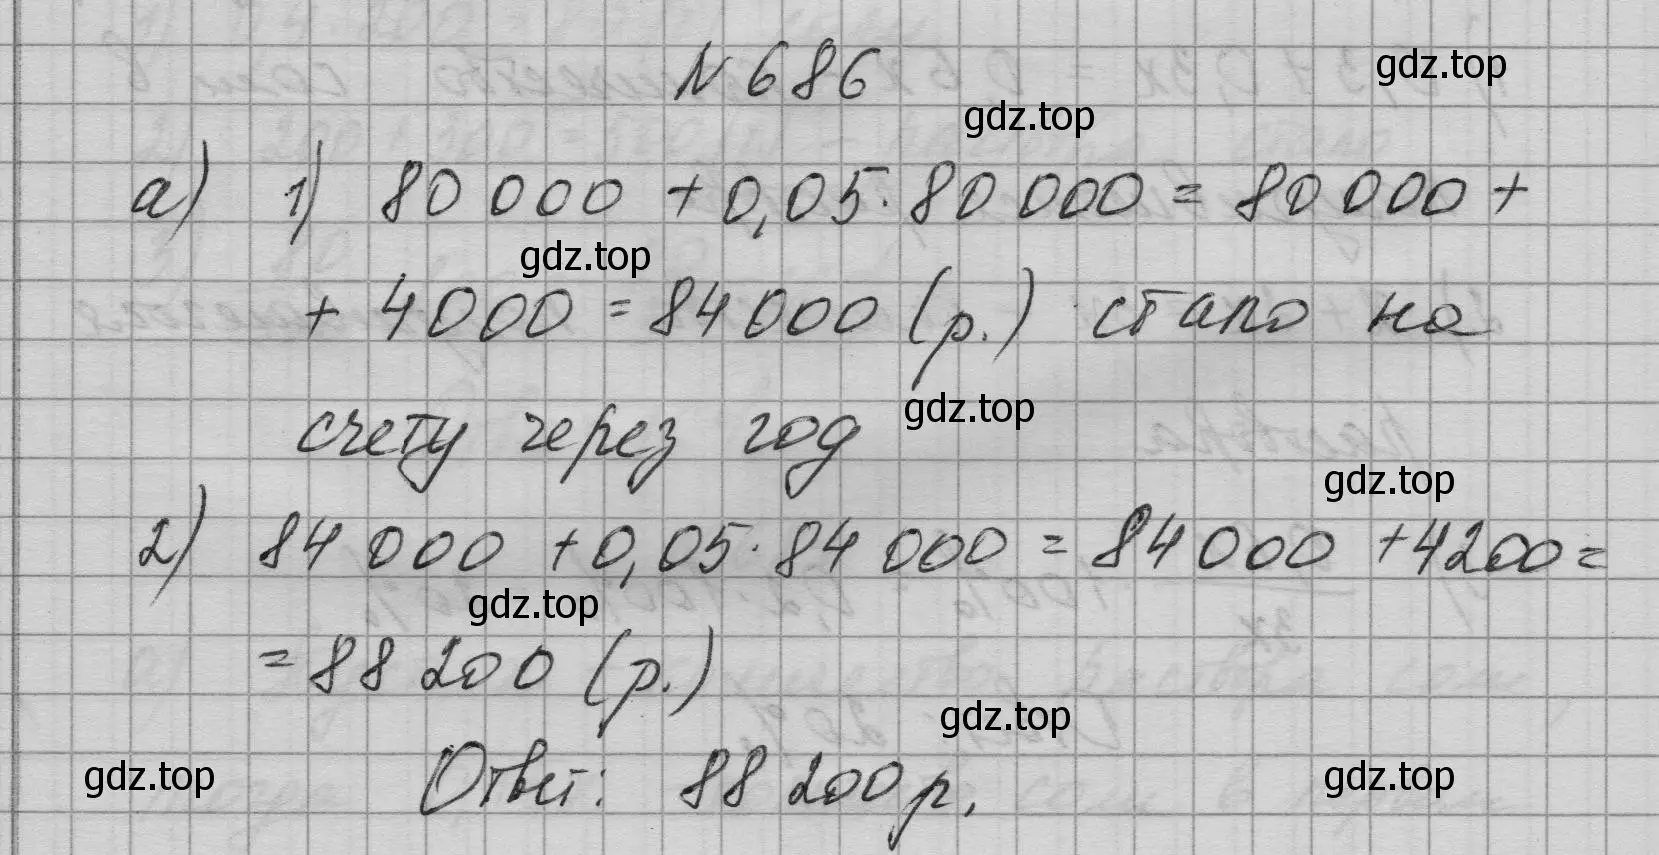 № 686
gdz.top
gdz.top
а) 1) 80 000 + 0,05 · 80 000 = 80 000 +
gdz.top
+ 4000 = 84 000 (р.) стало на
gdz.top
счету через год
gdz.top
2) 84 000 + 0,05 · 84 000 = 84 000 + 4200 =
gdz.top
= 88 200 (р.)
gdz.top
gdz.top
gdz.top
Ответ: 88 200 р.